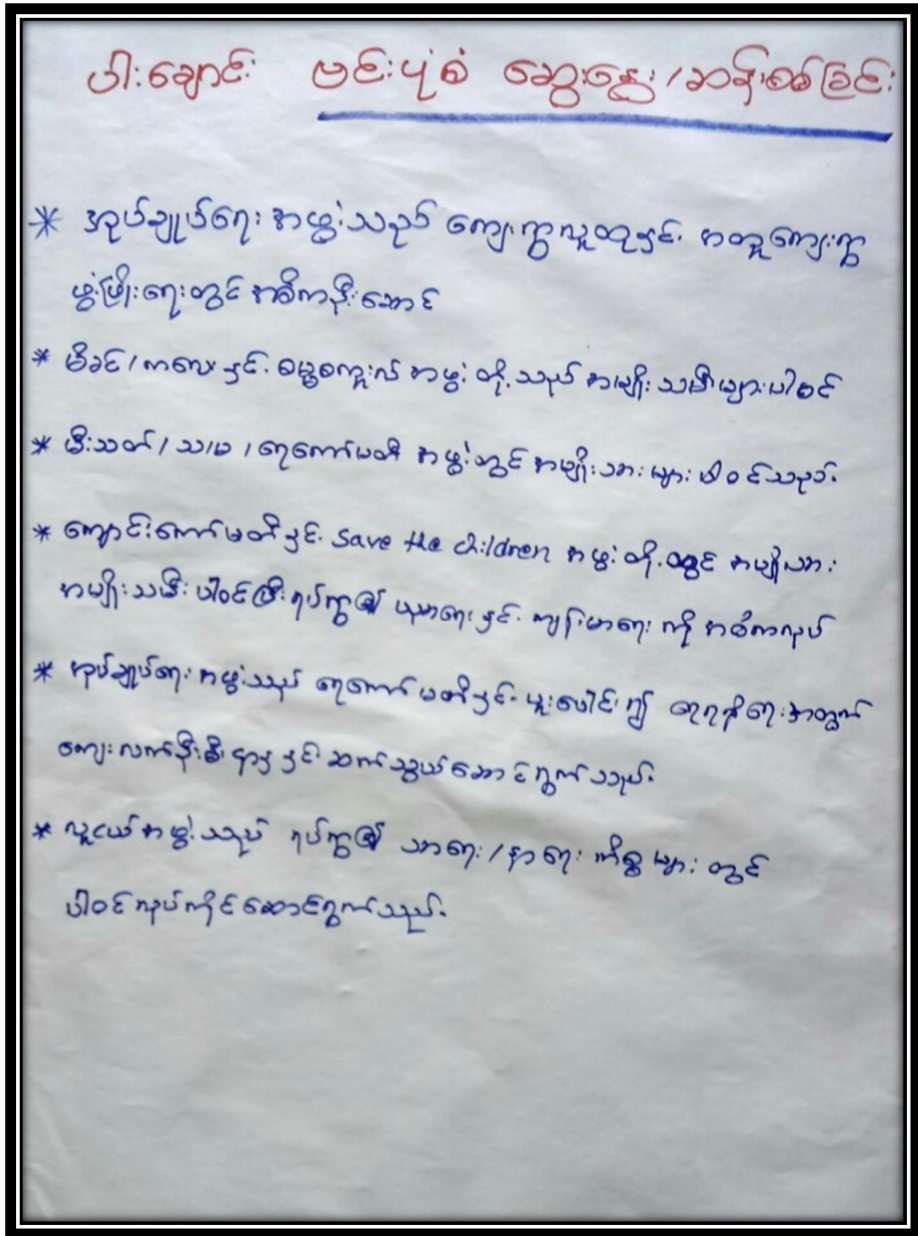 ပါးချောင်း ဗင်းပုံစံ ဆွေးနွေး/ဆန်းစစ်ခြင်း
* အုပ်ချုပ်ရေး အဖွဲ့သည် ကျေးရွာလူထုနှင့် အတူကျေးရွာ
ဖွံ့ဖြိုးရေးတွင် အဓိကဦးဆောင်
* မိခင်/ကလေး နှင့် ဓမ္မစကူးလ် အဖွဲ့ တို့သည် အမျိုးသမီးများပါဝင်
* မီးသတ်/သ/မ/ရေကော်မတီ အဖွဲ့တွင် အမျိုးသားများ ပါဝင်သည်။
* ကျောင်းကော်မတီနှင့် Save the children အဖွဲ့တို့တွင် အမျိုးသား
အမျိုးသမီး ပါဝင်ပြီး ရပ်ရွာ၏ ပညာရေးနှင့် ကျန်းမာရေး ကို အဓိကလုပ်
* အုပ်ချုပ်ရေး အဖွဲ့သည် ရေကော်မတီနှင့် ပူးပေါင်း၍ ရေရရှိရေးအတွက်
ကျေးလက်ဦးစီးဌာနနှင့် ဆက်သွယ်ဆောင်ရွက်သည်။
* လူငယ်အဖွဲ့သည် ရပ်ရွာ၏ သာရေး/နာရေး ကိစ္စများ တွင်
ပါဝင်လုပ်ကိုင်ဆောင်ရွက်သည်။